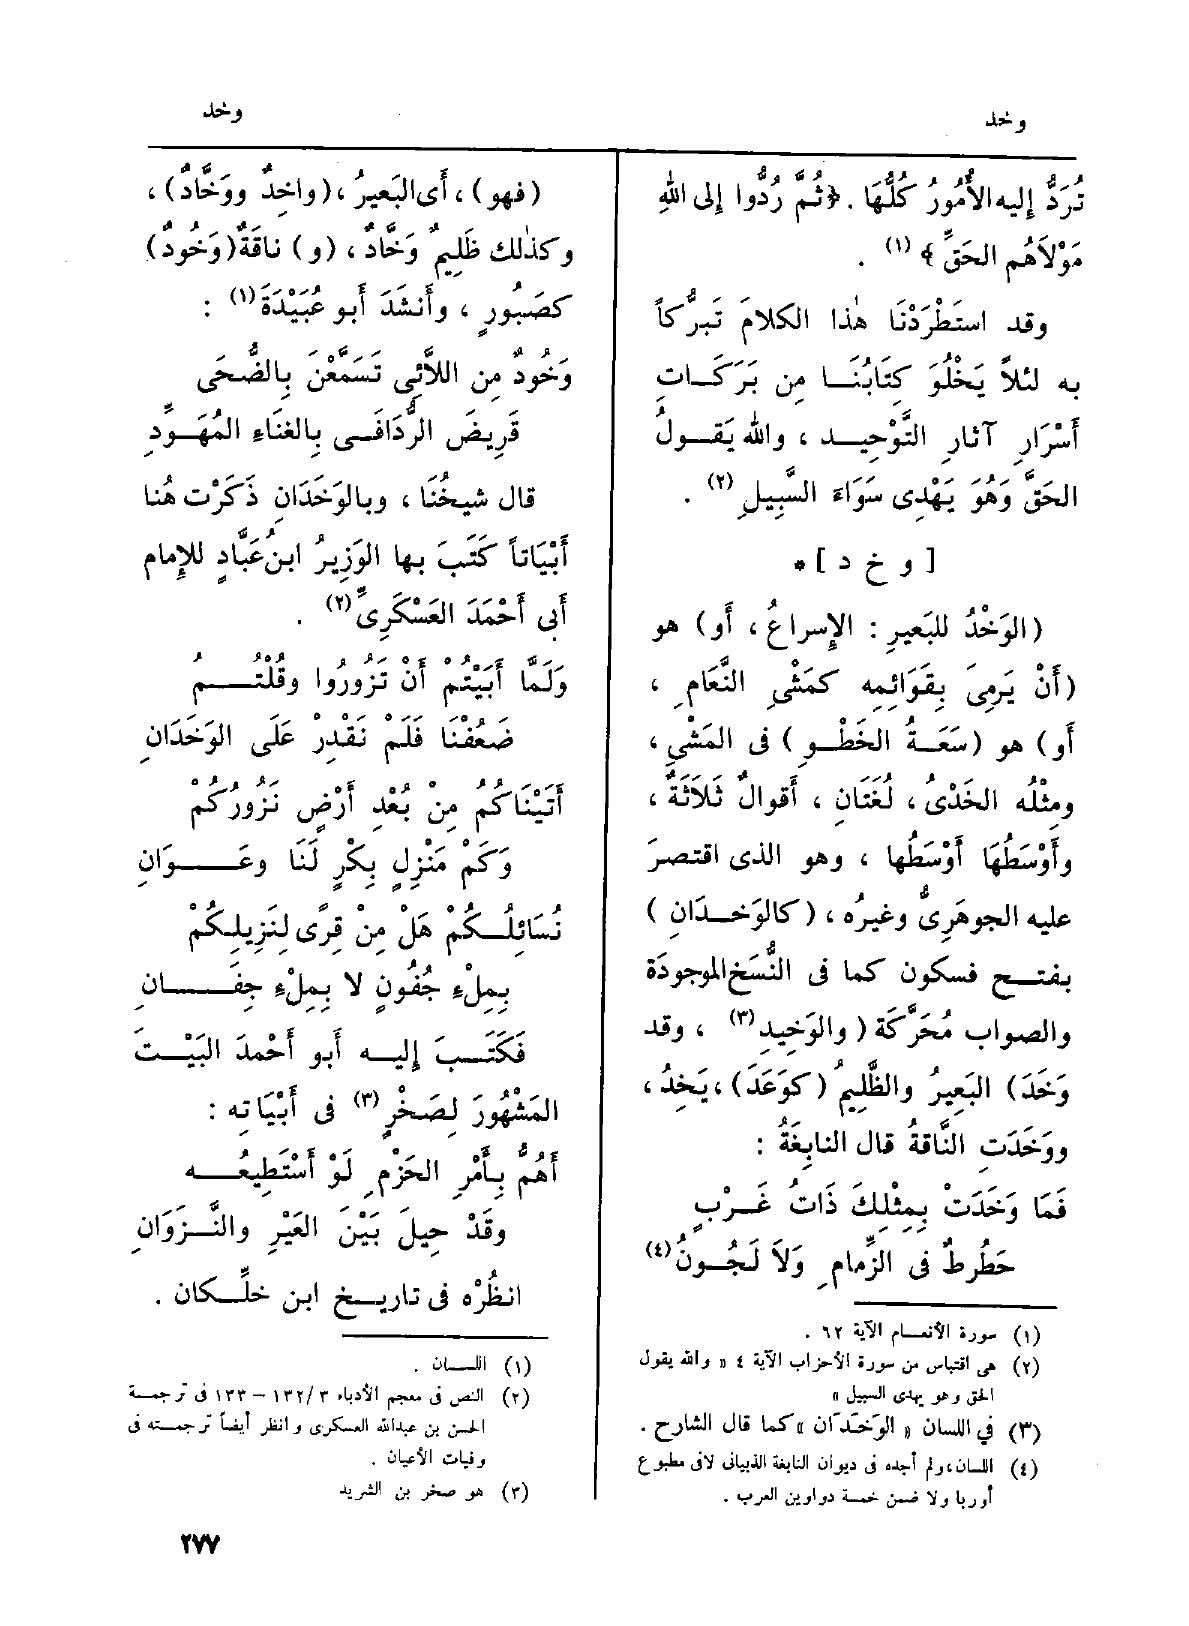 وخد
وخد
تُرَدُّ إليه الأُمُورُ كُلُّهَا . ﴿ثُمَّ رُدُّوا إلى اللهِ
مَوْلاَهُم الحَقِّ ﴾ (١) .
وقد استَطْرَدْنَا هٰذا الكلامَ تَبرُّكاً
به لئلاَّ يَخْلُوَ كِتَابُنَا من بَرَكَاتِ
أَسْرَارِ آثارِ التَّوْحِيد ، والله يَقولُ
الحَقَّ وَهُوَ يَهْدِى سَوَاءَ السَّبِيلِ (٢) .
[ و خ د ] *
(الوَخْدُ للبَعيرِ : الإسراعُ ، أَو) هو
(أَنْ يَرمِىَ بِقَوَائِمِه كمَشْىِ النَّعَامِ ،
أَو) هو (سَعَةُ الخَطْوِ ) فى المَشْىِ ،
ومِثْلُه الخَدْىُ ، لُغَتَانِ ، أَقوالٌ ثَلاثَةٌ ،
وأَوْسَطُهَا أَوْسَطُها ، وهو الذى اقتصرَ
عليه الجوهَرِىُّ وغيرُه ، (كالوَخْدَانِ )
بفتح فسكون كما فى النُّسَخ الموجودَة
والصواب مُحَرَّكَة ( والوَخِيدِ (٣) ، وقد
وَخَدَ) البَعِيرُ والظَّلِيمُ (كوَعَدَ) ، يَخِدُ ،
ووَخَدَتِ النَّاقةُ قال النابِغَةُ :
فَمَا وَخَدَتْ بِمِثْلِكَ ذَاتُ غَرْبٍ
حَطُوطٌ فى الزِّمامِ وَلاَ لَجُونُ (٤)
(١) سورة الأنعام الآية ٦٢ .
(٢) هى اقتباس من سورة الأحزاب الآية ٤ « والله يقول
الحق وهو يهدى السبيل »
(٣) في اللسان « الوَخَدَان » كما قال الشارح .
(٤) اللسان، ولم أجده فى ديوان النابغة الذبيانى لافى مطبوع
أوربا ولا ضمن خمسة دواوين العرب .
(فهو) ، أَى البَعيرُ ، (واخِدٌ ووَخَّادٌ) ،
وكذٰلك ظَلِيمٌ وَخَّادٌ ، (و) ناقَةٌ (وَخُودٌ)
كصَبُورٍ ، وأَنشَدَ أَبو عُبَيْدَةَ (١) :
وَخُودٌ مِن اللاَّئِى تَسَمَّعْنَ بِالضُّحَى
قَرِيضَ الرُّدَافَى بِالغنَاءِ المُهَوِّدِ
قال شيخُنَا ، وبالوَخَدَانِ ذَكَرْت هُنا
أَبْيَاتاً كَتَبَ بها الوَزِيرُ ابنُ عَبَّادٍ للإِمام
أَبى أَحْمَدَ العَسْكَرِىِّ (٢) .
وَلَمَّا أَبَيْتُمْ أَنْ تَزُورُوا وقُلْتُمُ
ضَعُفْنَا فَلَمْ نَقْدِرْ عَلَى الوَخَدَانِ
أَتَيْنَاكُمُ مِنْ بُعْدِ أَرْضٍ نَزُورُكُمْ
وَكَمْ مَنْزِلٍ بِكْرٍ لَنَا وعَوَانِ
نُسَائِلُكُمْ هَلْ مِنْ قِرًى لِنَزِيلِكُمْ
بِمِلْءِ جُفُونٍ لا بِمِلْءِ جِفَانِ
فَكَتَبَ إليه أَبو أَحْمدَ البَيْتَ
المَشْهُورَ لِصَخْرٍ (٣) فى أَبْيَاتِه :
أَهُمُّ بِأَمْرِ الحَزْمِ لَوْ أَسْتَطِيعُه
وقَدْ حِيلَ بَيْنَ العَيْرِ والنَّزَوَانِ
انظُرْه فى تاريخ ابن خلِّكان .
(١) اللسان .
(٢) النص فى معجم الأدباء ٣ /١٣٢ – ١٣٣ فى ترجمة
الحسن بن عبدالله العسكرى وانظر أيضاً ترجمته فى
وفيات الأعيان .
(٣) هو صخر بن الشريد
٢٧٧